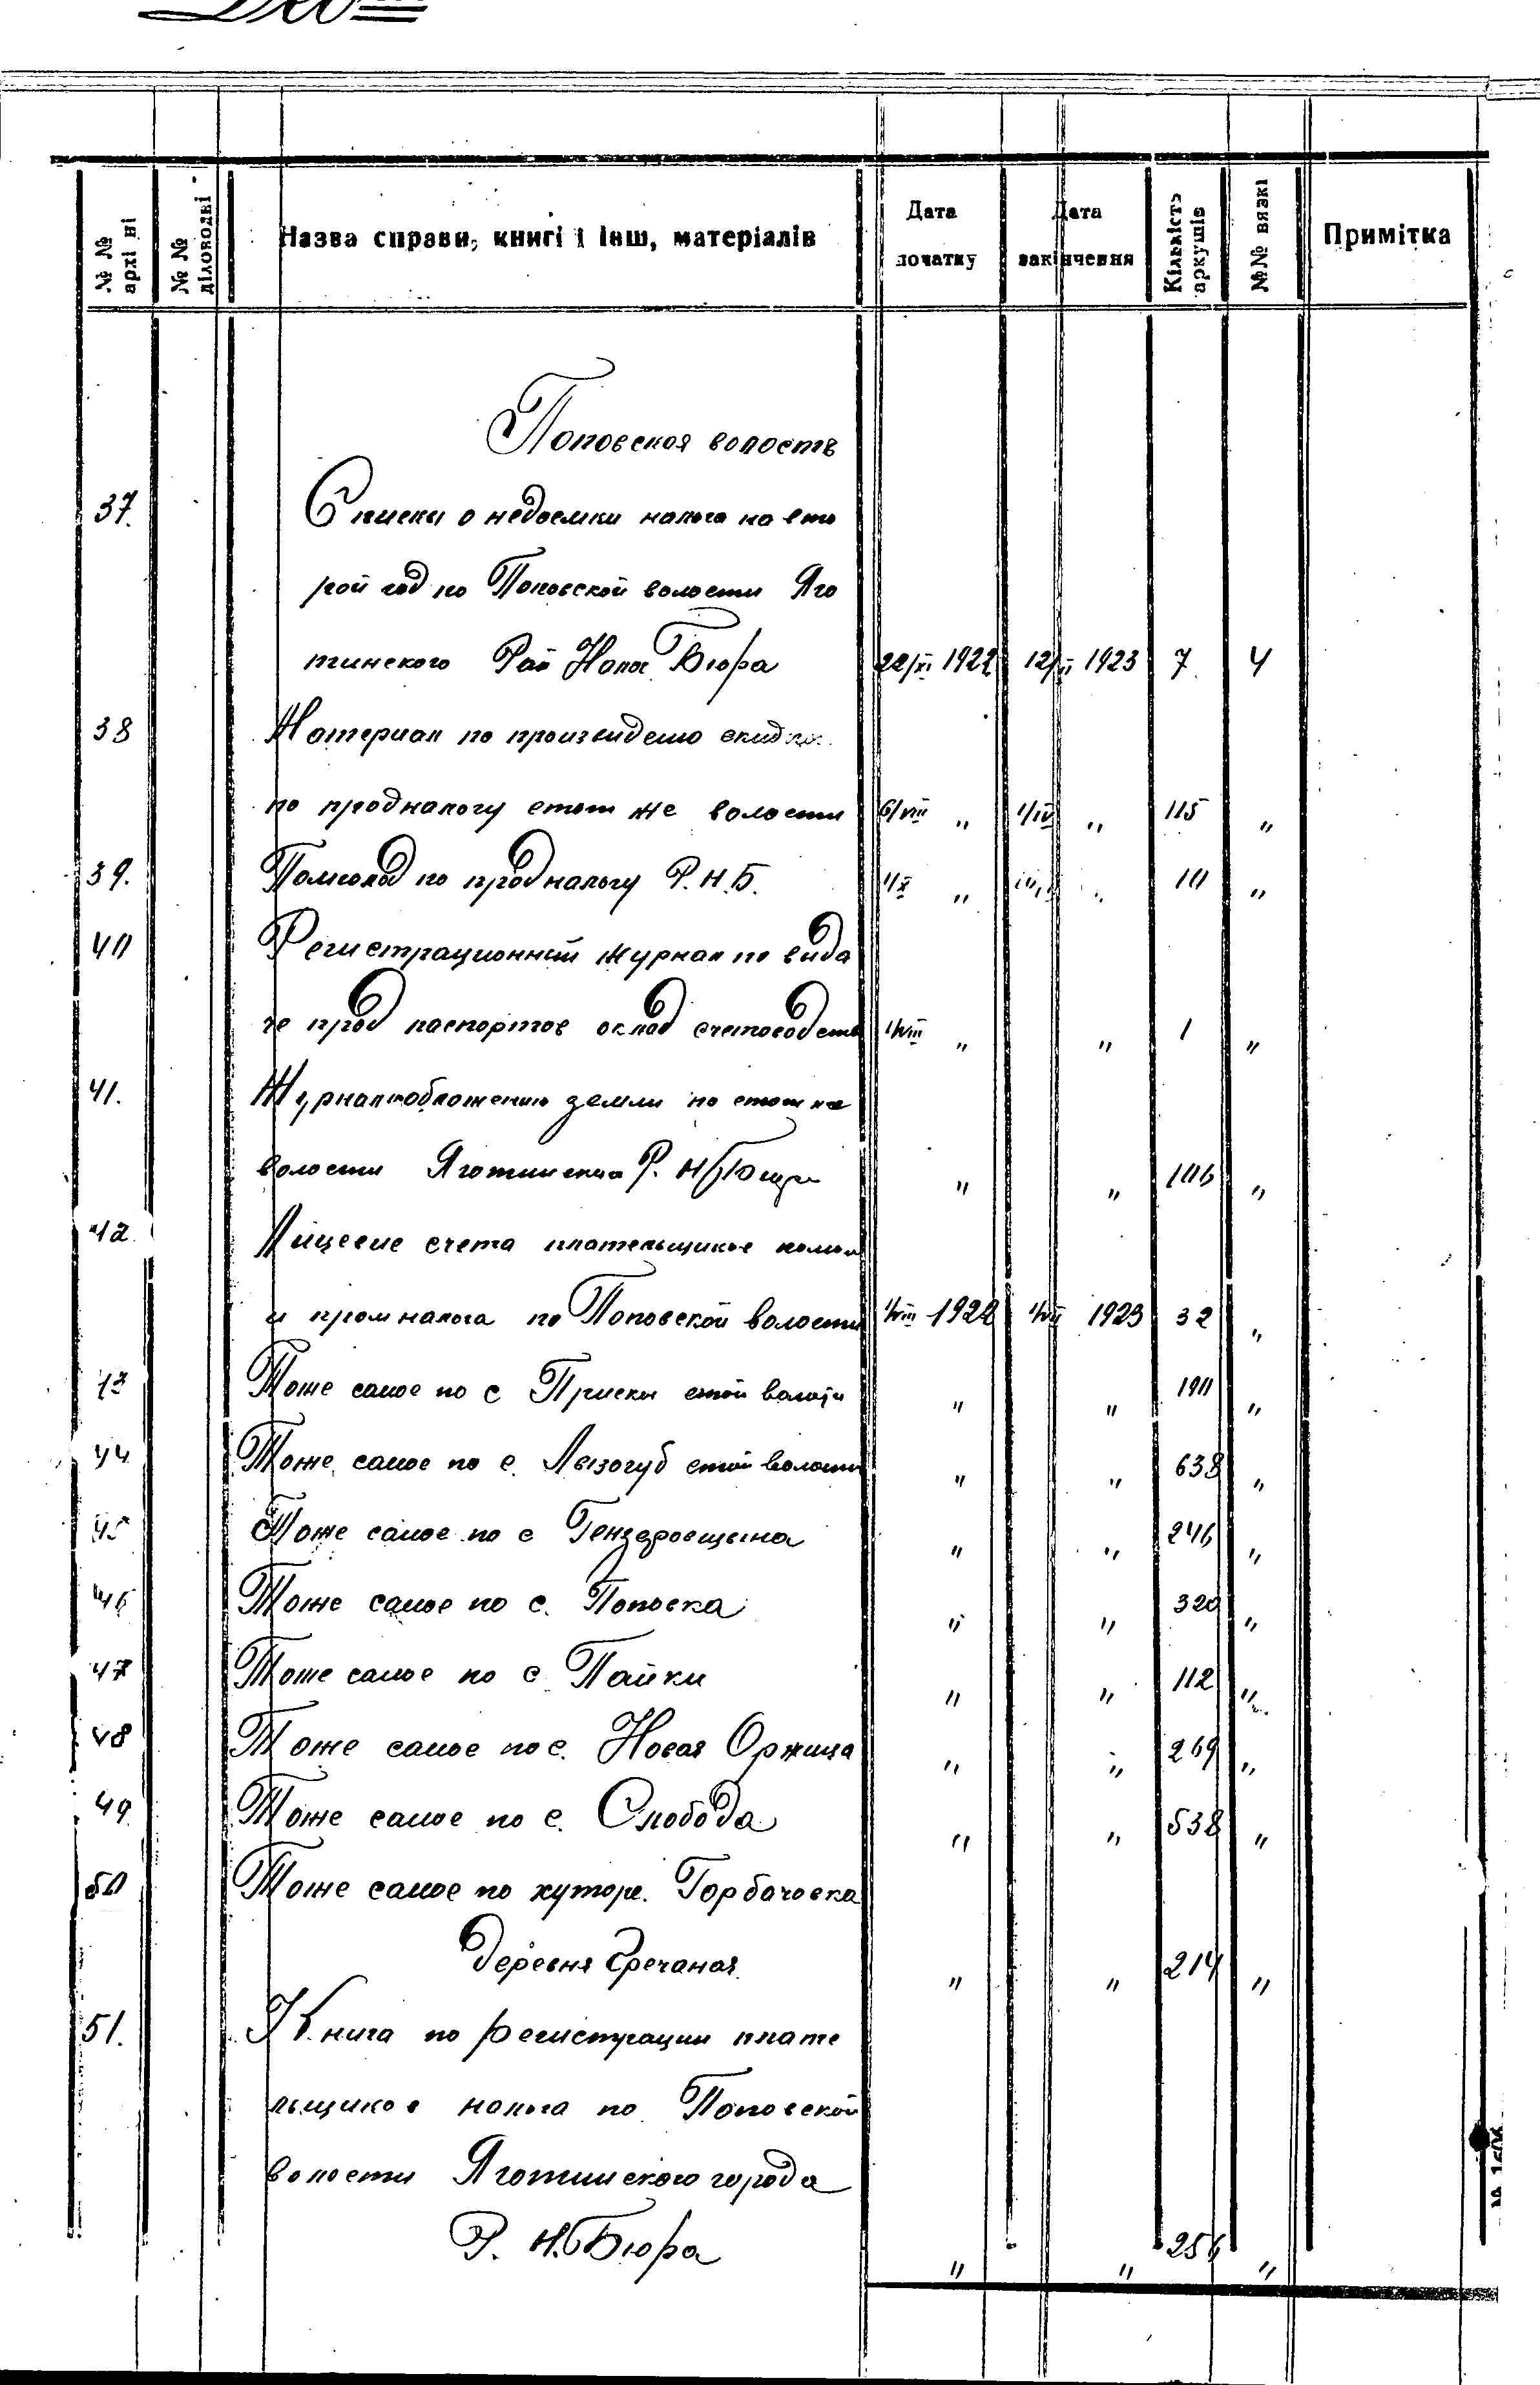 № № архі ні № № діловодні Назва справи, книгі і інш, матеріалів Дата початку Дата закінчення Кількість аркушів №№ вязкі Примітка
Поповская волость
37. Списки о недоемки налога на вто
рой год по Поповской волости Яго
тинского Рай Налог Бюра 22/XI 1922 12/II 1923 7 4
38 Материал по
по продналогу етой же волости 6/VIII " 1/IV " 115 "
39. по продналогу Р.Н.Б. 1/X " " 10 "
40 Регистрационний журнал по вида
че прод паспортов оклад счетоводств 1/VIII " " 1 "
41. Журнал обложению земли по етой же
волости Яготинская Р. Н " " 106 "
42. Лицевие счета плательщиков
и промналога по Поповской волости 1/VIII 1922 1/VII 1923 32 "
43 Тоже самое по с Приски етой волости " " 190 "
44 Тоже самое по с. Лызогуб етой волости " " 638 "
45 Тоже самое по с Гензеровщына " " 246 "
46 Тоже самое по с. Поповка " " 320 "
47 Тоже самое по с Пайки " " 112 "
48 Тоже самое по с. Новая Оржица " " 269 "
49. Тоже самое по с. Слобода " " 538 "
50 Тоже самое по хуторе. Горбачовка
деревня Гречаная " " 214 "
51. Книга по регистрации плате
льщиков налога по Поповской
волости Яготинского города
Р. Н. Бюра " " 256 "